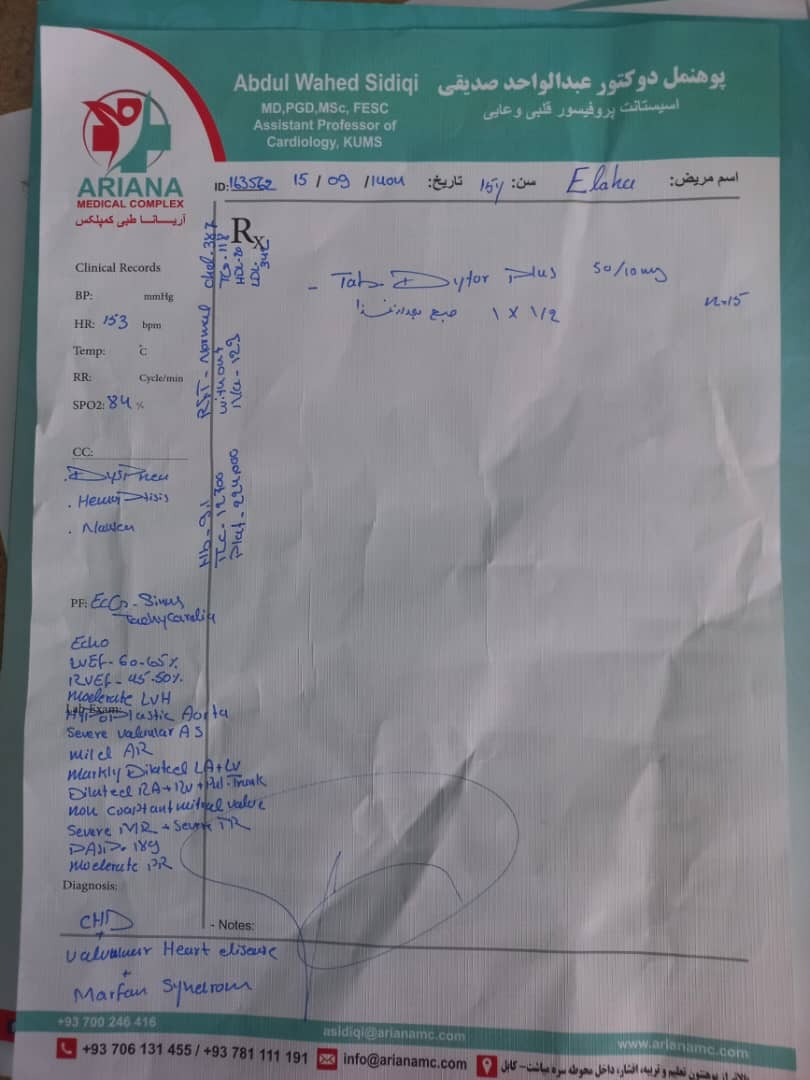 Abdul Wahed Sidiqi
MD,PGD,MSc, FESC
Assistant Professor of
Cardiology, KUMS
پوهنمل دوکتور عبدالواحد صدیقی
اسیستانت پروفیسور قلبی وعایی
ARIANA
MEDICAL COMPLEX
آریـــانـــا طبی کمپلکس
اسم مریض: Elaha سن: 15y تاریخ: 15 / 09 / 1404 ID: 163562
Rx
Clinical Records
BP: mmHg
HR: 153 bpm
Temp: °C
RR: Cycle/min
SPO2: 84 %
- Tab. Dytor Plus 50/10mg
N=15
1 x 1/2 صبح بعد از غذا
Hb - 9.1
TLC - 12700
Plat - 224000
RFT - Normal
without
Na - 129
Chol. 387
TG - 118
HDL-20
LDL. 342
CC:
. Dyspnea
. Hemoptisis
. Nausea
PF: ECG - Sinus
Tachycardia
Echo
LVEF - 60-65%
RVEF - 45-50%
Moderate LVH
Lab Exam:
Hypoplastic Aorta
Severe valvular AS
Mild AR
Markly Dilated LA+LV
Dilated RA+RV+Pul-Trunk
Non coaptant mitral valve
Severe MR + Severe TR
PASP. 189
Moderate PR
Diagnosis:
CHD
+
Valvular Heart disease
+
Marfan Syndrom
- Notes:
+93 700 246 416
asidiqi@arianamc.com
www.arianamc.com
+93 706 131 455 / +93 781 111 191
info@arianamc.com
پوهنتون تعلیم و تربیه، افشار، داخل محوطه سره میاشت- کابل